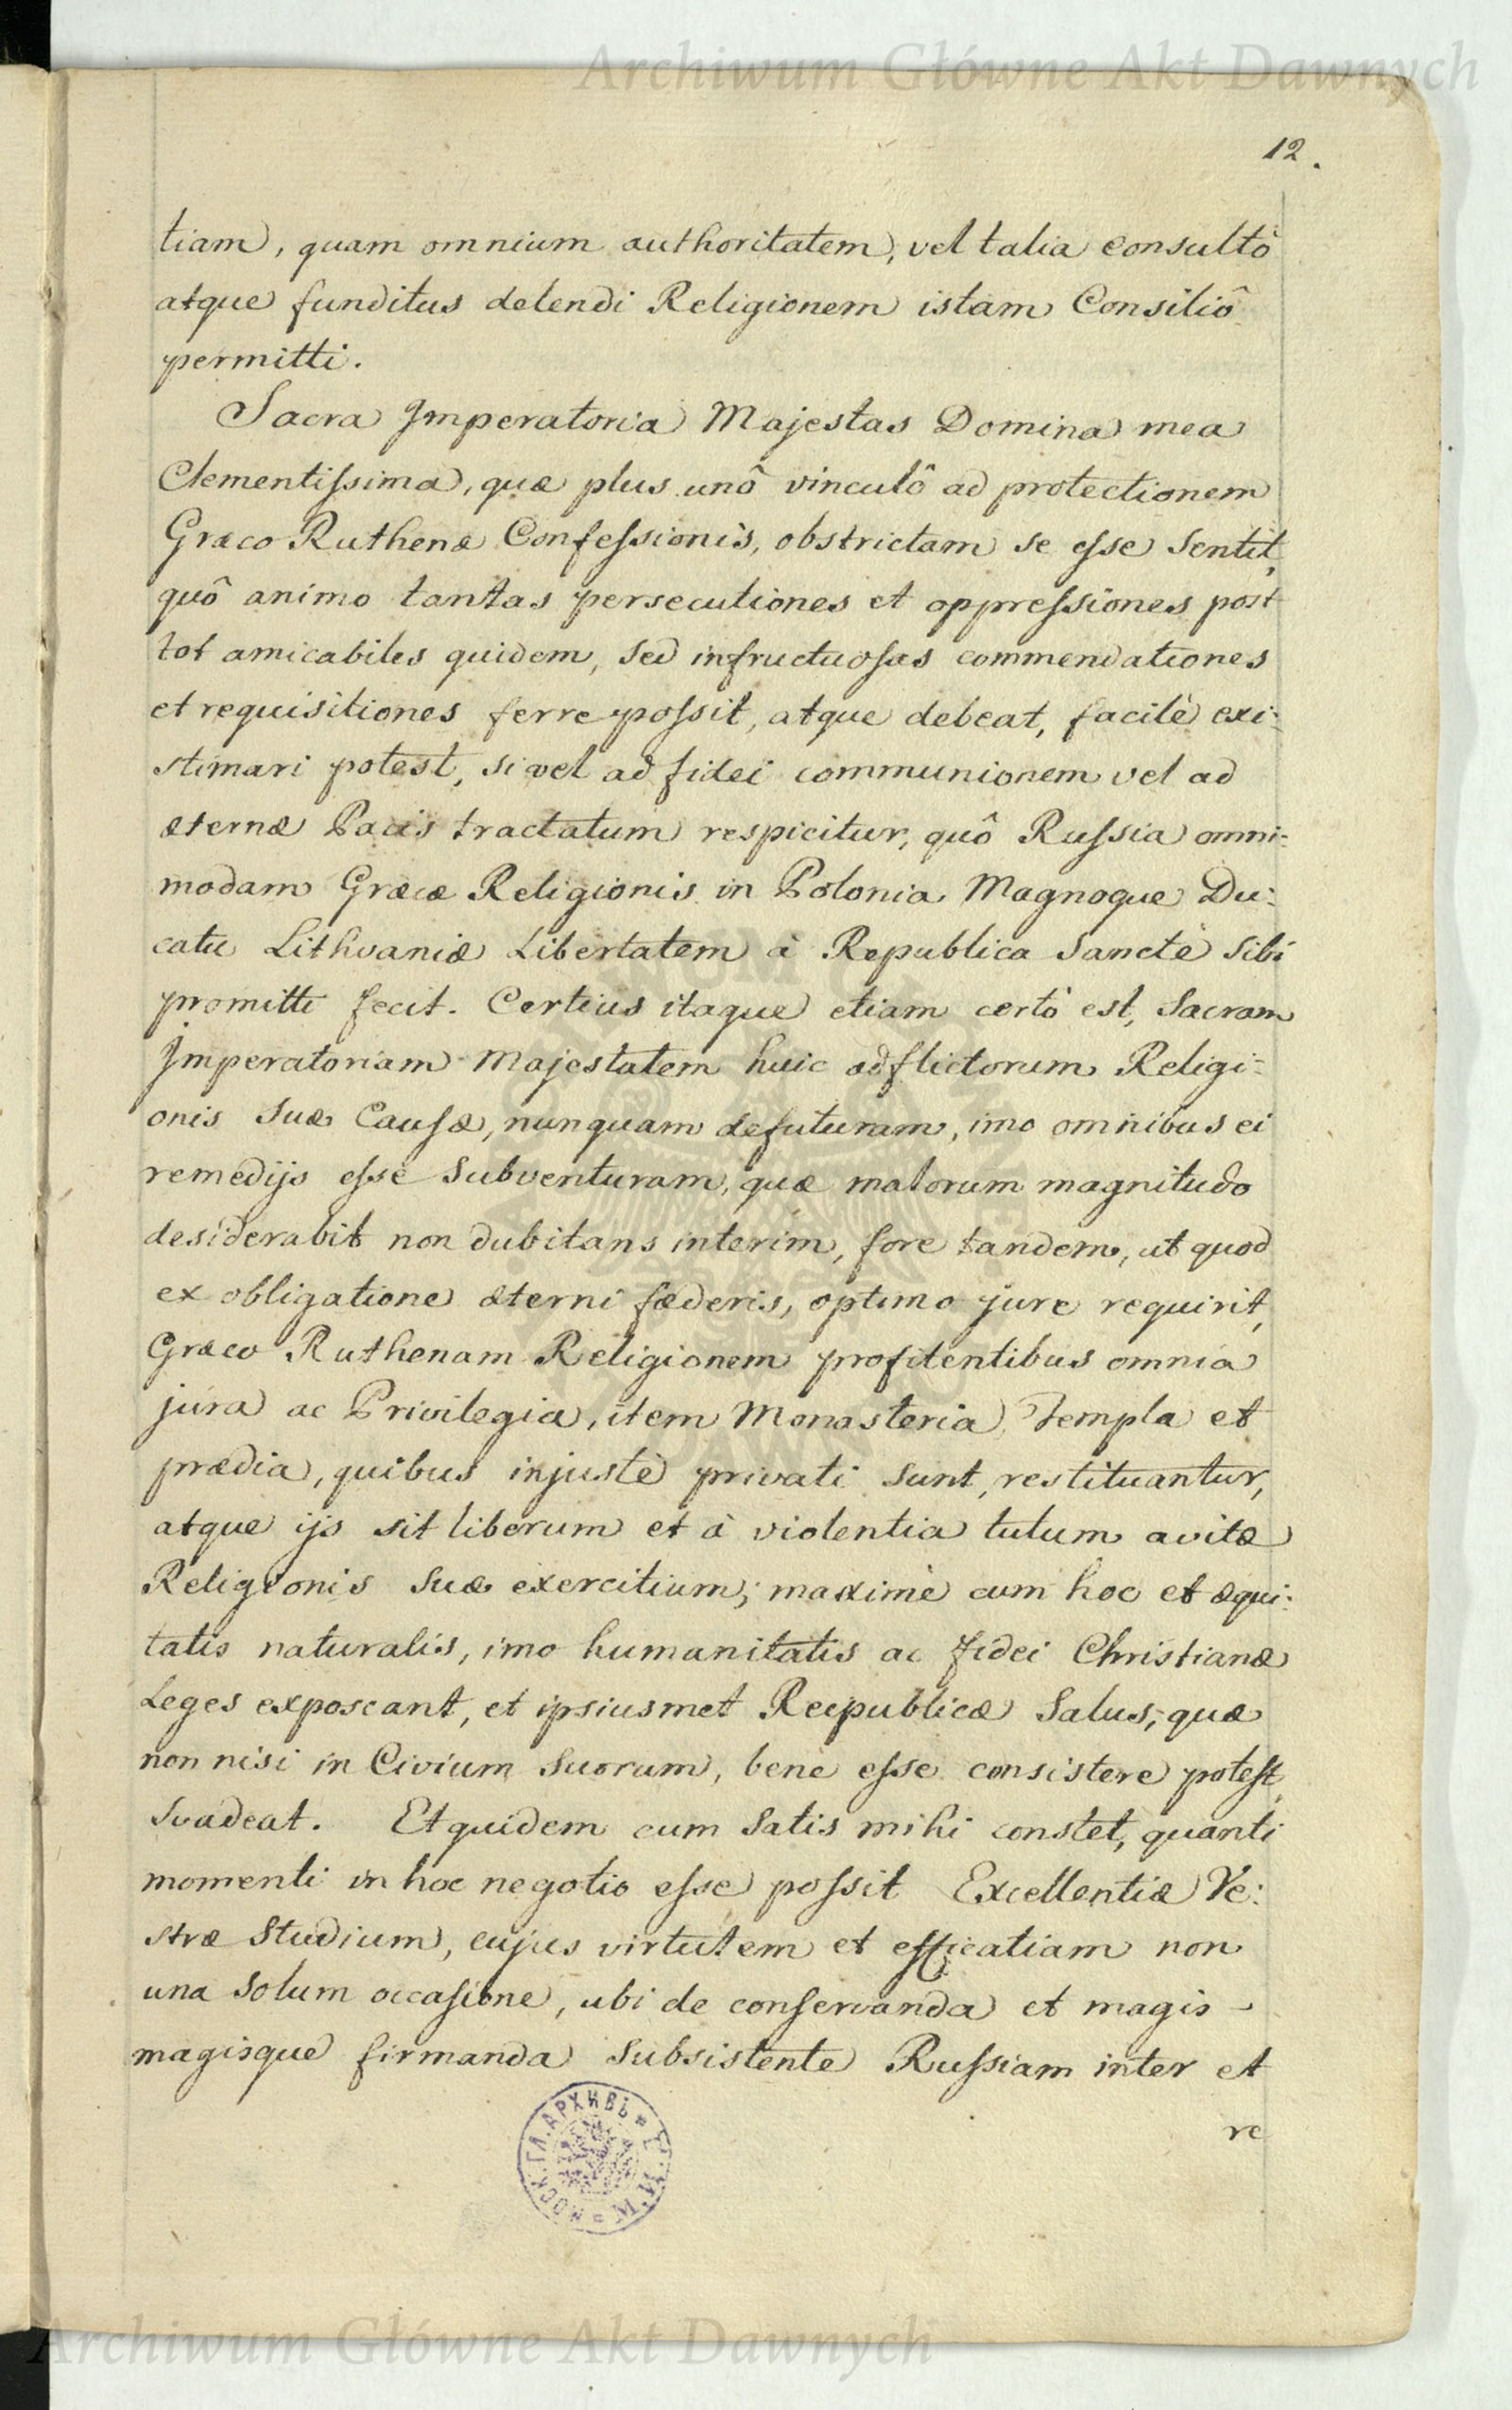 Archiwum Główne Akt Dawnych
12.
tiam, quam omnium authoritatem, vel talia consultò
atque funditus delendi Religionem istam Consiliô
permitti.
Sacra Imperatoria Majestas Domina mea
Clementiſsima, quæ plus unô vinculô ad protectionem
Græco Ruthenæ Confeſsionis, obstrictam se eſse Sentit,
quô animo tantas persecutiones et oppreſsiones post
tot amicabiles quidem, sed infructuoſas commendationes
et requisitiones ferre poſsit, atque debeat, facilè exi:
stimari potest, si vel ad fidei communionem vel ad
æternæ Pacis tractatum respicitur, quô Ruſsia omni:
modam Græcæ Religionis in Polonia Magnoque Du:
catu Lithvaniæ Libertatem à Republica Sanctè Sibi
promitti fecit. Certius itaque etiam certò est, Sacram
Imperatoriam Majestatem huic adflictorum Religi:
onis Suæ Cauſæ, nunquam defuturam, imo omnibus ei
remedijs eſse Subventuram, quæ malorum magnitudo
desiderabit non dubitans interim, fore tandem, ut quod
ex obligatione æterni fæderis, optimo jure requirit,
Græco Ruthenam Religionem profitentibus omnia
jura ac Privilegia, item Monasteria, Templa et
prædia, quibus injustè privati Sunt, restituantur,
atque ijs sit liberum et à violentia tutum avitæ
Religionis Suæ exercitium; maximè cum hoc et æqui:
tatis naturalis, imo humanitatis ac fidei Christianæ
Leges exposcant, et ipsiusmet Reipublicæ Salus, quæ
non nisi in Civium Suorum, bene eſse consistere poteſt,
Svadeat. Et quidem cum Satis mihi constet, quanti
momenti in hoc negotio eſse poſsit Excellentiæ Ve:
stræ Studium, cujus virtutem et efficatiam non
una Solum occaſione, ubi de conſervanda et magis
magisque firmanda Subsistente Ruſsiam inter et
re
МОСК. ГЛ. АРХИВЪ
Archiwum Główne Akt Dawnych